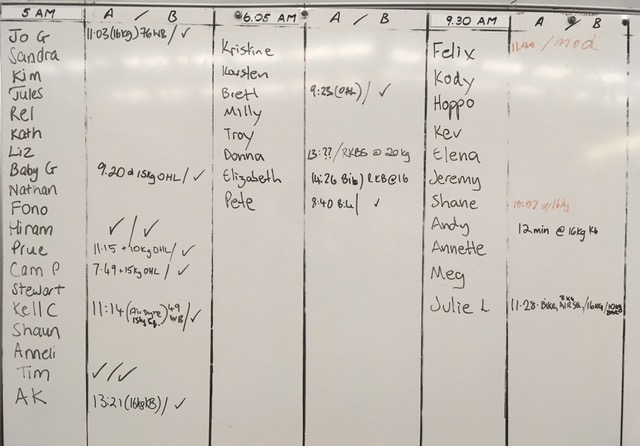 5 AM A / B
Jo G 11:03 (16kg) 76 WB / ✓
Sandra
Kim
Jules
Rel
Kath
Liz
Baby G 9.20 15kg OHL / ✓
Nathan
Fono
Hiram ✓ / ✓
Prue 11.15 + 10kg OHL / ✓
Cam P 7.49 + 15kg OHL / ✓
Stewart
Kell C 11:14 49 WB / ✓
Shaun
Anneli
Tim ✓ / ✓
AK 13:21 (16kg KB) / ✓
6.05 AM A / B
Kristine
Karsten
Brett 9:23 (OHL) / ✓
Milly
Troy
Donna 13:?? / RKBS @ 20kg
Elizabeth (14:26 Bib) RKB @ 16
Pete 8:40 / ✓
9.30 AM A / B
Felix / mod
Kody
Hoppo
Kev
Elena
Jeremy
Shane 16kg
Andy 12 min @ 16kg Kb
Annette
Meg
Julie L 11:28 / 16kg /